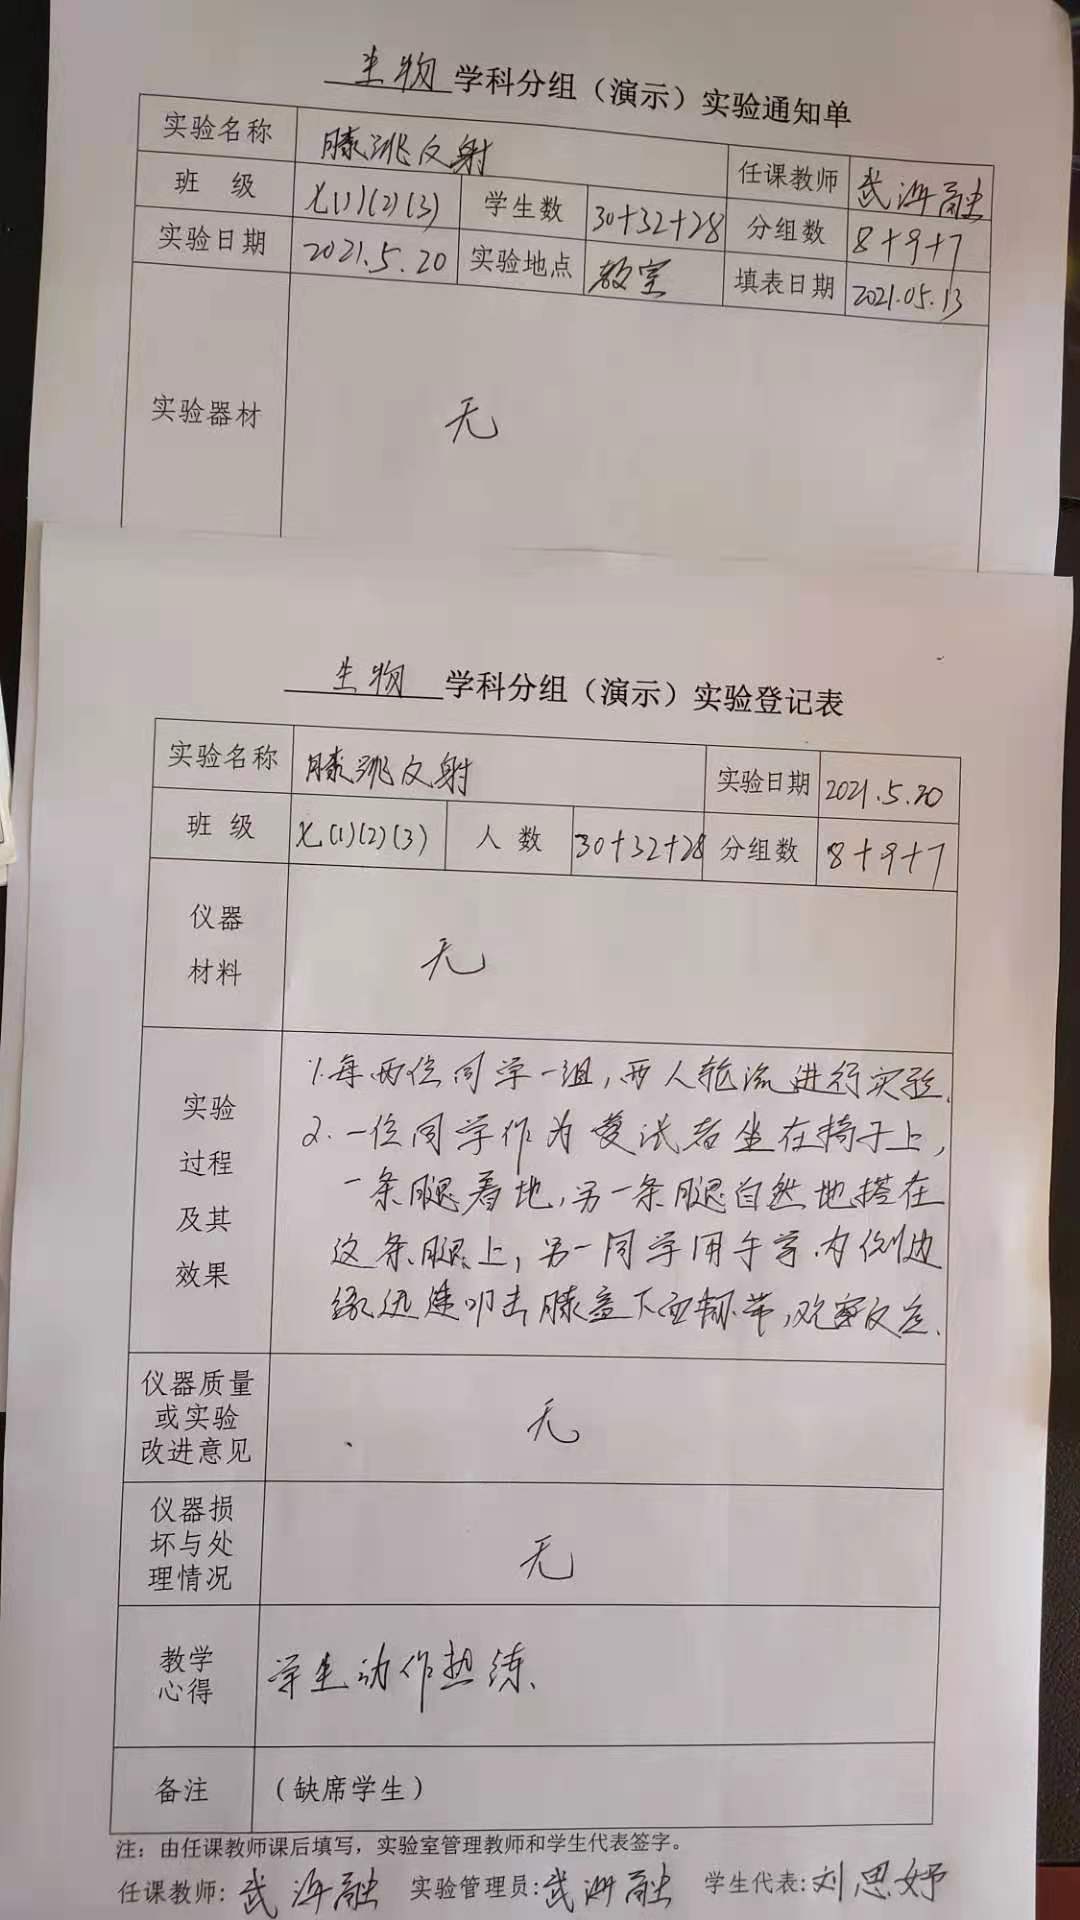 生物 学科分组（演示）实验通知单
实验名称 膝跳反射 任课教师 武海融
班 级 七(1)(2)(3) 学生数 30+32+28 分组数 8+9+7
实验日期 2021.5.20 实验地点 教室 填表日期 2021.05.13
实验器材 无
生物 学科分组（演示）实验登记表
实验名称 膝跳反射 实验日期 2021.5.20
班 级 七(1)(2)(3) 人 数 30+32+28 分组数 8+9+7
仪器
材料
无
实验
过程
及其
效果
1.每两位同学一组,两人轮流进行实验.
2.一位同学作为受试者坐在椅子上,
一条腿着地,另一条腿自然地搭在
这条腿上,另一同学用手掌内侧边
缘迅速叩击膝盖下面韧带,观察反应.
仪器质量
或实验
改进意见
无
仪器损
坏与处
理情况
无
教学
心得
学生动作熟练.
备注 （缺席学生）
注：由任课教师课后填写，实验室管理教师和学生代表签字。
任课教师: 武海融 实验管理员: 武海融 学生代表: 刘思妤